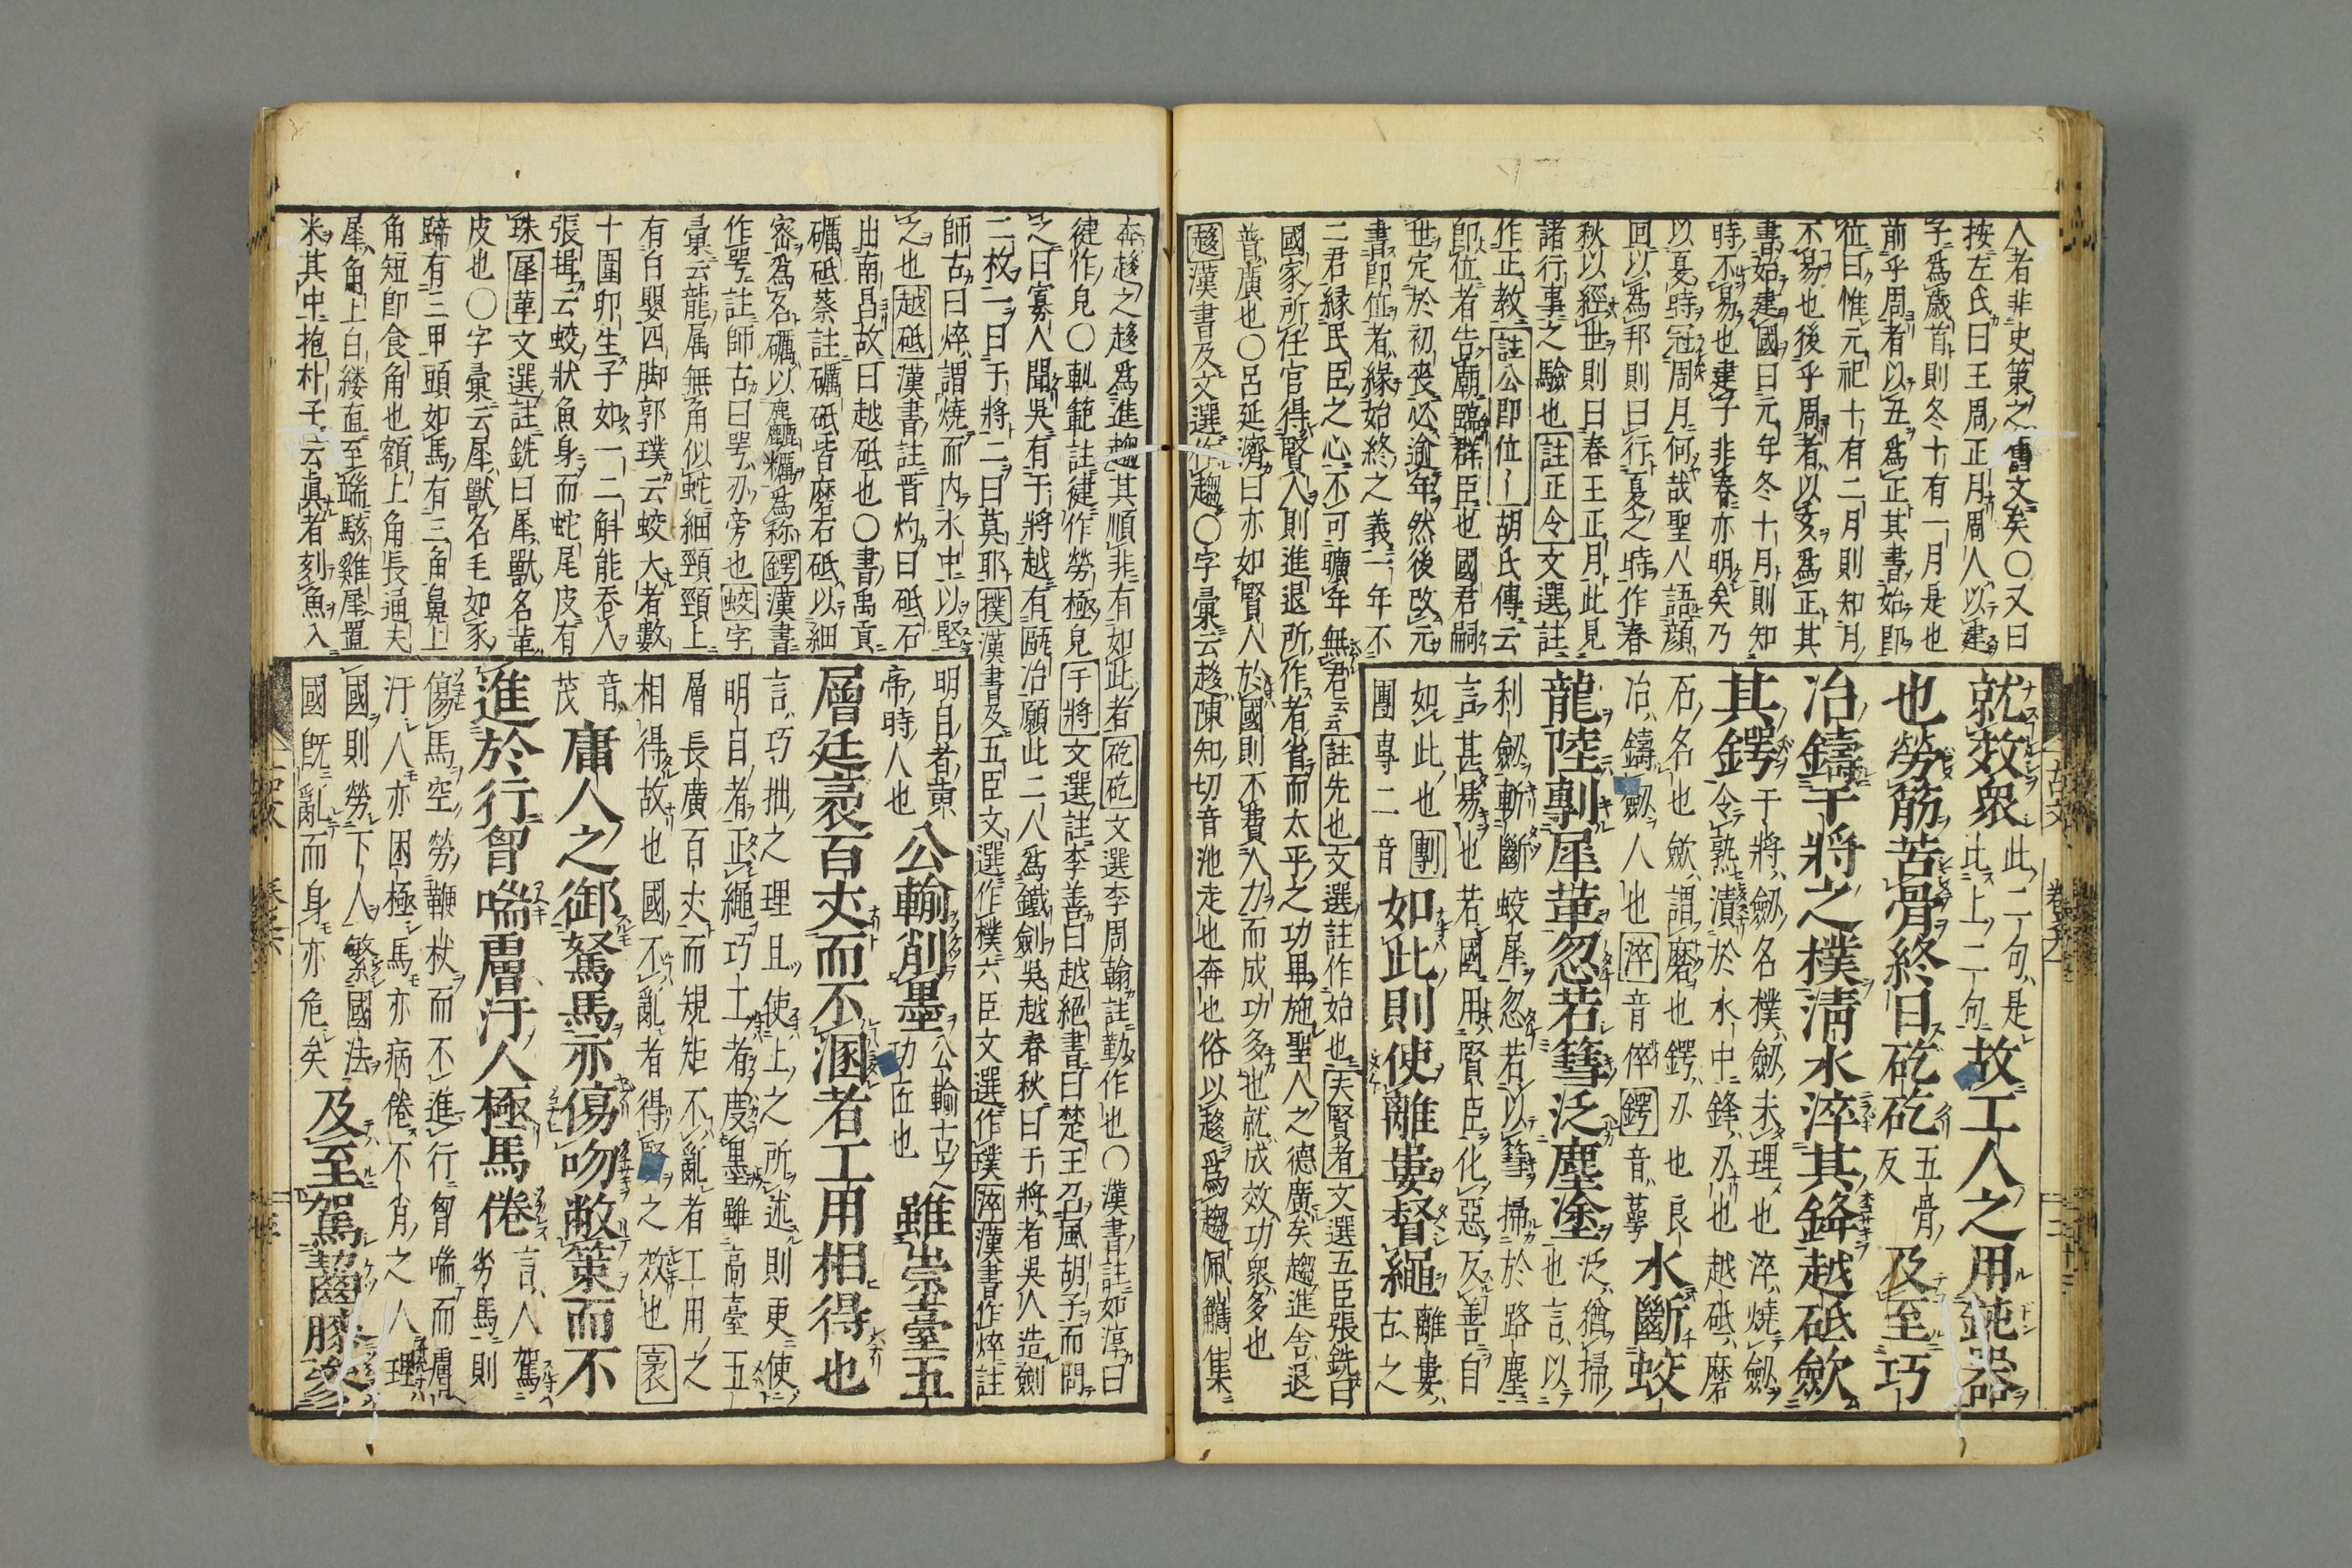 人者非史策之舊文矣〇又曰
按左氏曰王周正月周人以建
子爲歲首則冬十有一月是也
前乎周者以丑爲正其書始即
位曰惟元祀十有二月則知月
不易也後乎周者以亥爲正其
書始建國曰元年冬十月則知
時不易也建子非春亦明矣乃
以夏時冠周月何哉聖人語顔
回以爲邦則曰行夏之時作春
秋以經世則曰春王正月此見
諸行事之驗也註正令文選註
作正教註公即位〡胡氏傳云
即位者告廟臨群臣也國君嗣
世定於初喪必逾年然後改元
書即位者緣始終之義一年不
二君緣民臣之心不可曠年無君云云註先也文選註作始也夫賢者文選五臣張銑曰
國家所任官得賢人則進退所作者省而太平之功畢施聖人之德廣矣趨進舍退
普廣也〇呂延濟曰亦如賢人於國則不費人力而成功多也就成效功衆多也
趍漢書及文選作趨〇字彙云趍陳知切音池走也奔也俗以趍爲趨佩觿集
就效衆此二句是
比上二句故工人之用鈍器
也勞筋苦骨終日矻矻五骨
反及至巧
冶鑄干將之樸清水淬其鋒越砥斂
其鍔干將劒名樸劒未理也淬燒劒
令熟漬於水中鋒刃也越砥磨
石名也斂謂磨也鍔刃也良
冶鑄劒人也淬音倅鍔音萼水斷蛟
龍陸剸犀革忽若篲泛塵塗泛猶掃
也言以
利劒斬斷蛟犀忽若以篲掃於路塵
言甚易也若國用賢臣化惡反善自
如此也剸
團專二音如此則使離婁督繩離婁
古之
奔趍之趍爲進趨其順非有如此者矻矻文選李周翰註勤作也〇漢書註如淳曰
健作皃〇軌範註健作勞極皃干將文選註李善曰越絕書曰楚王召風胡子而問
之曰寡人聞吳有干將越有甌冶願此二人爲鐵劍吳越春秋曰干將者吳人造劍
二枚一曰干將二曰莫耶樸漢書及五臣文選作樸六臣文選作璞淬漢書作焠註
師古曰焠謂燒而内水中以堅
之也越砥漢書註晋灼曰砥石
出南昌故曰越砥也〇書禹貢
礪砥蔡註礪砥皆磨石砥以細
密爲名礪以麁糲爲稱鍔漢書
作咢註師古曰咢刃旁也蛟字
彙云龍属無角似蛇細頸頸上
有白嬰四脚郭璞云蛟大者數
十圍卵生子如一二斛能吞人
張揖云蛟狀魚身而蛇尾皮有
珠犀革文選註銑曰犀獸名革
皮也〇字彙云犀獸名毛如豕
蹄有三甲頭如馬有三角鼻上
角短即食角也額上角長通天
犀角上白縷直至端駭雞犀置
米其中抱朴子云眞者刻魚入
明目者黄
帝時人也公輸削墨公輸古之
功匠也雖崇臺五
層延袤百丈而不溷者工用相得也
言巧拙之理且使上之所述則更使
明目者正繩巧士者度墨雖高臺五
層長廣百丈而規矩不亂者工用之
相得故也國不亂者得賢之效也袤
音
茂庸人之御駑馬亦傷吻敝策而不
進於行胷喘膚汗人極馬倦言人駕
劣馬則
傷馬空勞鞭杖而不進行胷喘而膚
汗人亦困極馬亦病倦不肖之人理
國則勞下人繁國法
國既亂而身亦危矣及至駕齧膝參